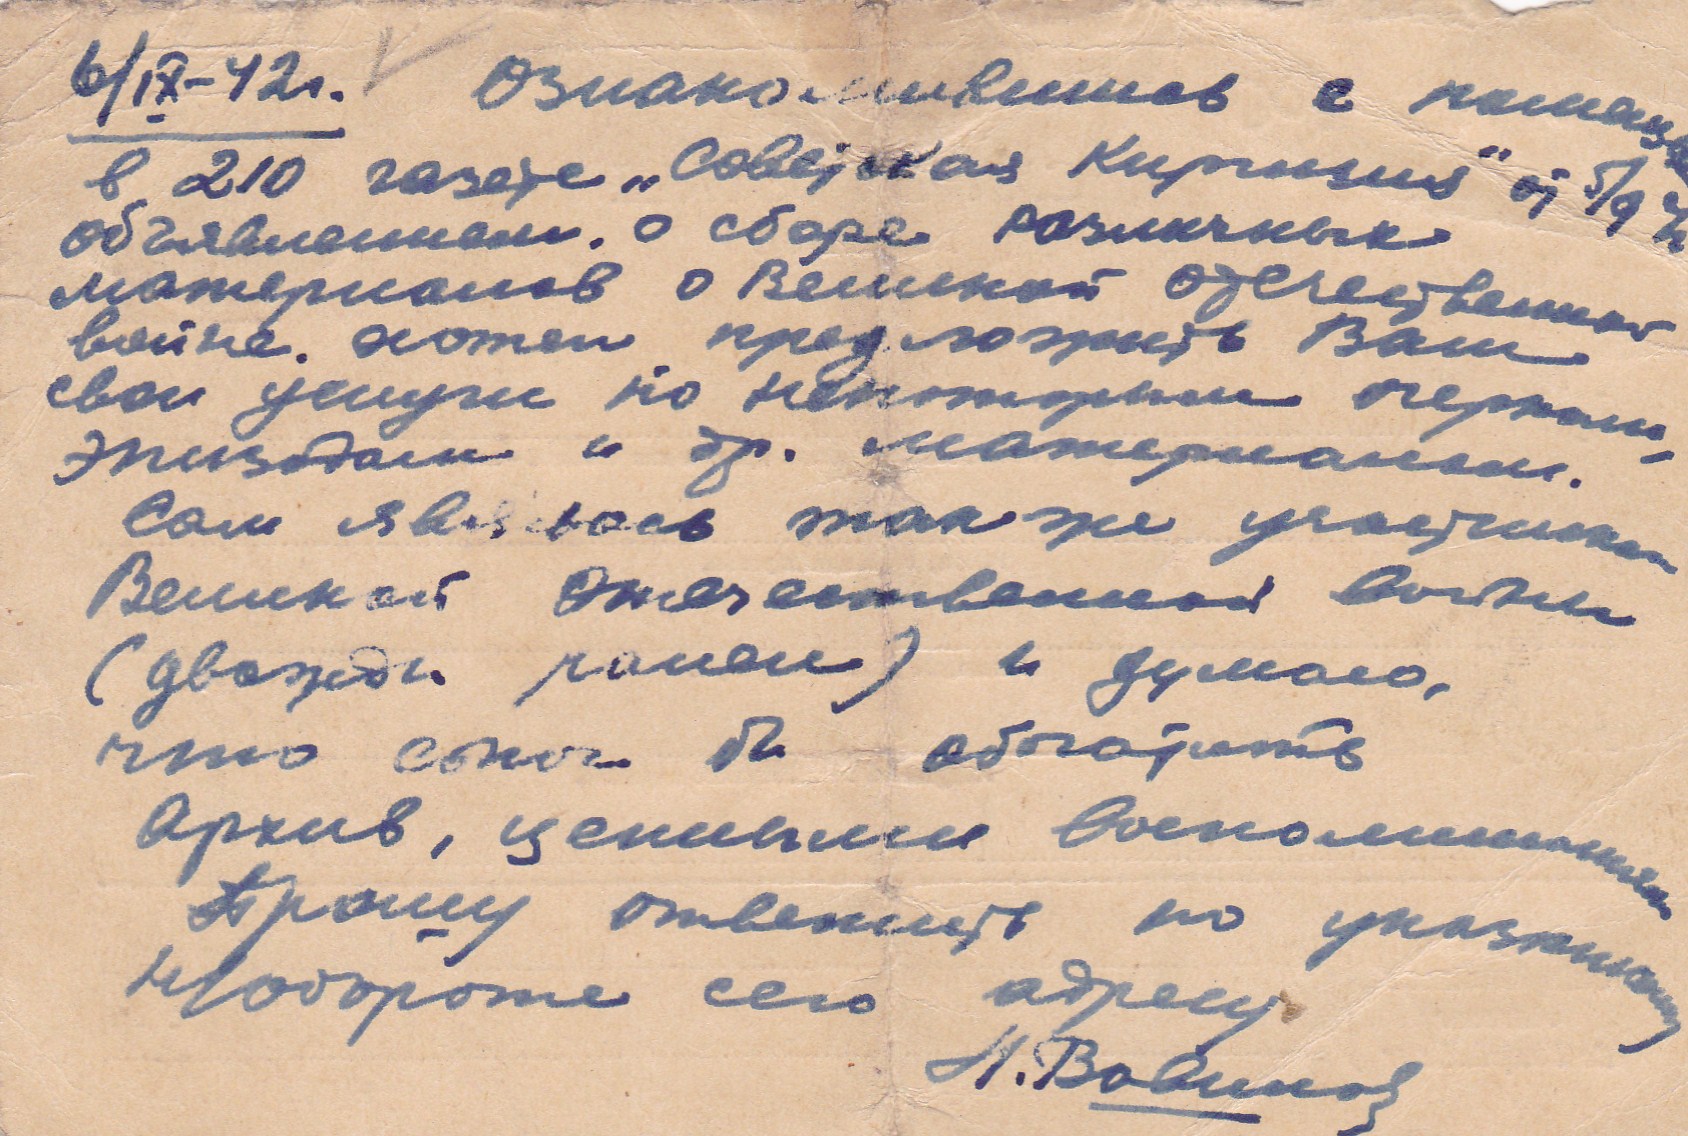 6/IX-42г. Ознакомившись с помещен.
в 210 газете „Советская Киргизия" от 5/9 42
объявлением о сборе различных
материалов о Великой Отечественной
войне. хотел предложить Вам
свои услуги по некоторым очеркам,
эпизодам и др. материалам.
Сам являюсь также участником
Великой Отечественной войны
(дважды ранен) и думаю,
что смог бы обогатить
Архив, ценными воспоминаниями
Прошу ответить по указанному
н/обороте сего адресу